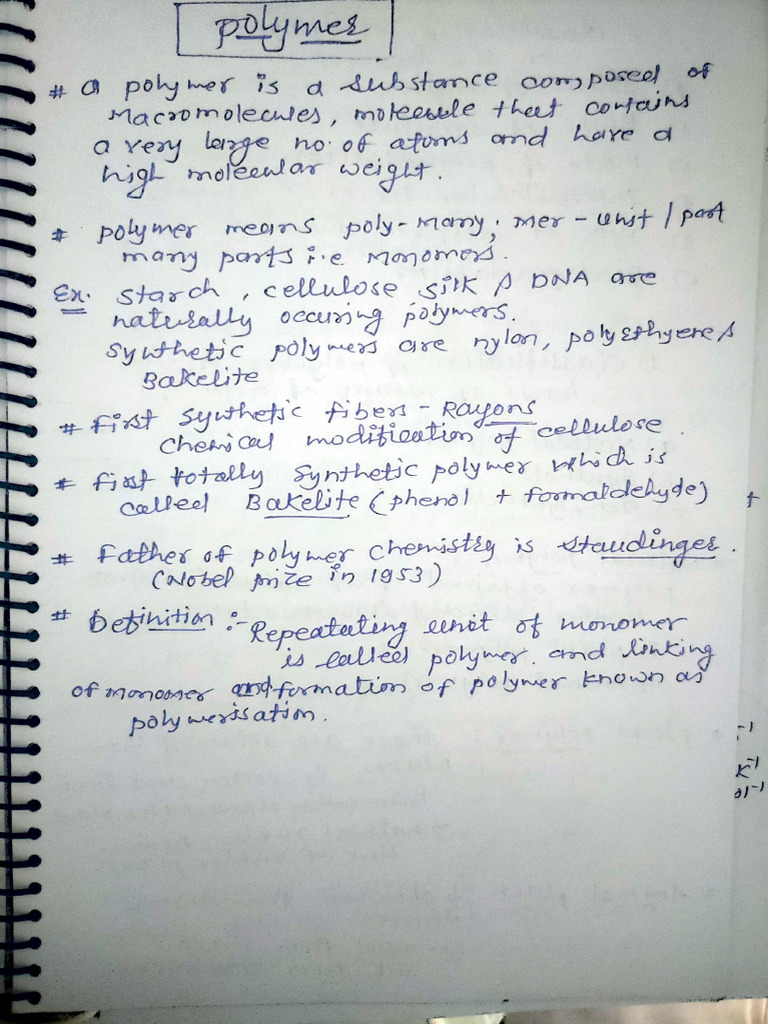 polymer
# a polymer is a substance composed of
Macromolecules, molecule that contains
a very large no. of atoms and have a
high molecular weight.
# polymer means poly-many; mer - unit / part
many parts i.e monomers.
Ex. starch, cellulose silk & DNA are
naturally occuring polymers.
Synthetic polymers are nylon, polyethyene &
Bakelite
# first synthetic fibers - Rayons
chemical modification of cellulose.
# first totally synthetic polymer which is
called Bakelite (phenol + formaldehyde)
# Father of polymer chemistry is staudinger.
(Nobel prize in 1953)
# Definition :- Repeatating unit of monomer
is called polymer. and linking
of monomer and formation of polymer known as
polymerissation.